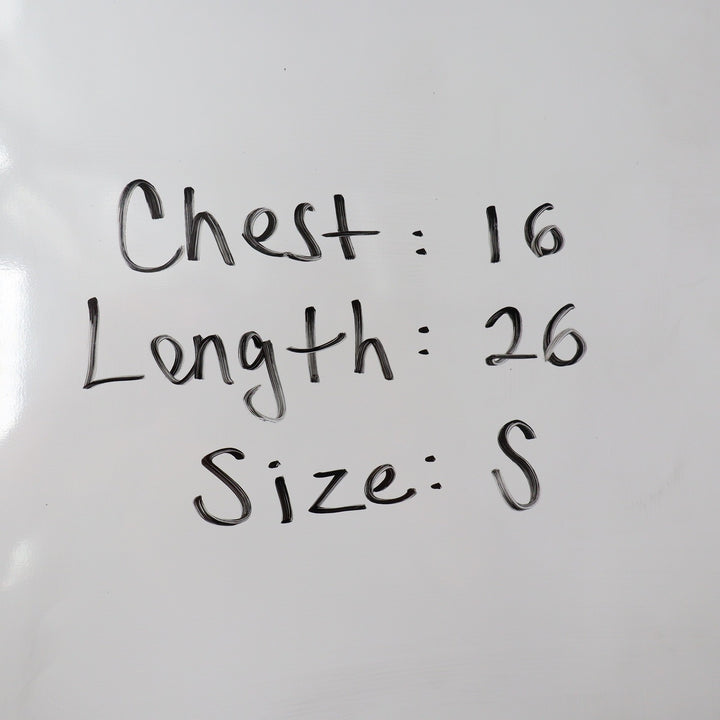 Chest: 16
Length: 26
Size: S